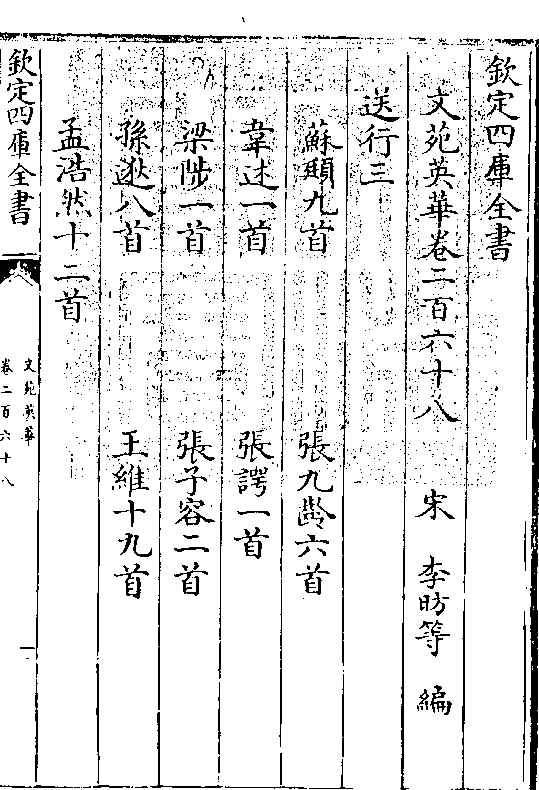 欽定四庫全書
文苑英華卷二百六十八　宋　李昉等　編
送行三
蘇頲九首　張九齡六首
韋述一首　張諤一首
梁陟一首　張子容二首
孫逖八首　王維十九首
孟浩然十二首
欽定四庫全書
文苑英華
卷二百六十八
一